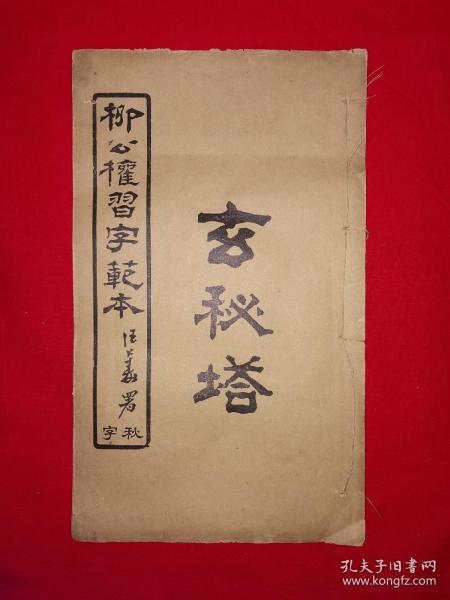 柳公權習字範本
署
秋字
玄秘塔
孔夫子旧书网
www.kongfz.com